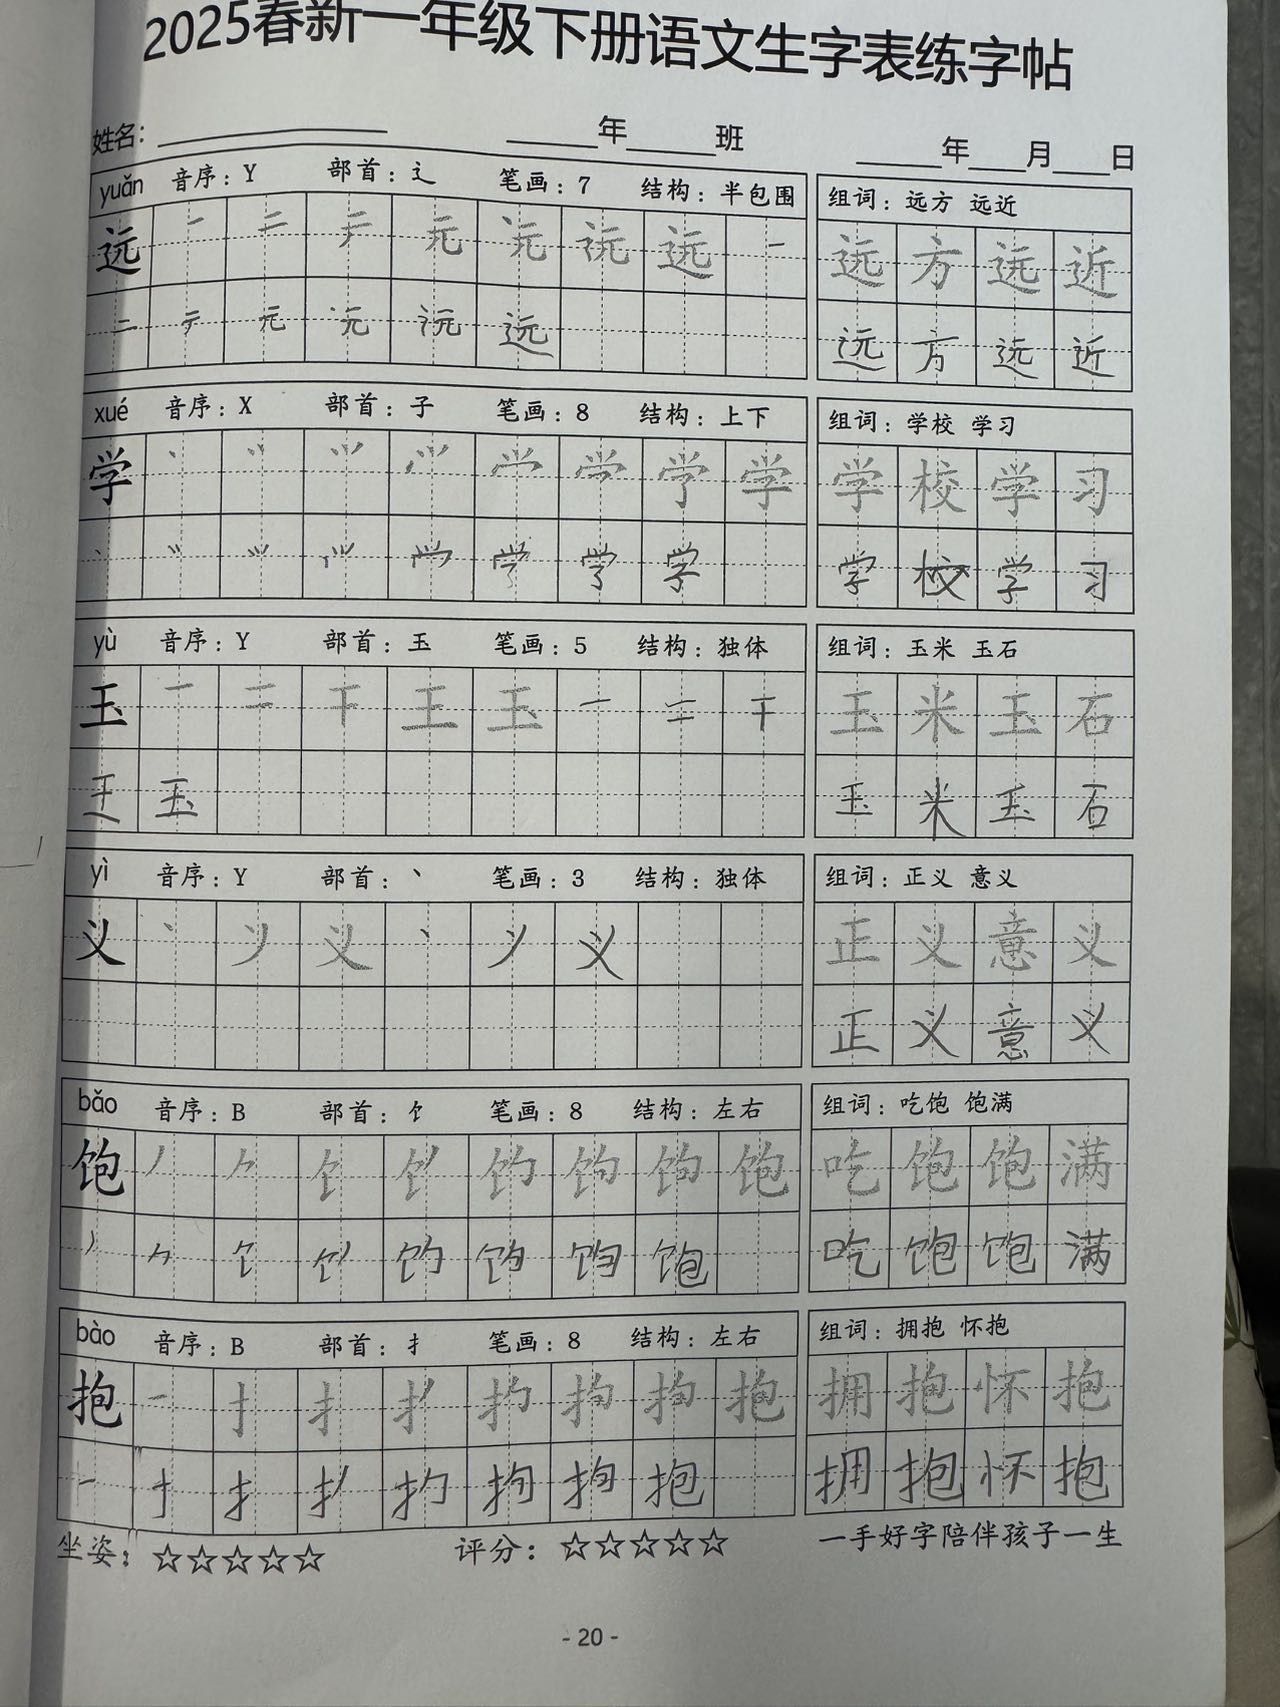 2025春新一年级下册语文生字表练字帖
姓名: ______ ____年____班 ____年___月___日
yuǎn 音序:Y 部首:辶 笔画:7 结构:半包围 组词:远方 远近
远 一 二 テ 元 远 一 远 方 远 近
二 テ 元 远 远 方 远 近
xué 音序:X 部首:子 笔画:8 结构:上下 组词:学校 学习
学 丶 学 学 校 学 习
丶 学 学 校 学 习
yù 音序:Y 部首:玉 笔画:5 结构:独体 组词:玉米 玉石
玉 一 二 干 王 玉 一 二 干 玉 米 玉 石
王 玉 玉 米 玉 石
yì 音序:Y 部首:丶 笔画:3 结构:独体 组词:正义 意义
义 丶 义 丶 义 正 义 意 义
正 义 意 义
bǎo 音序:B 部首:饣 笔画:8 结构:左右 组词:吃饱 饱满
饱 丿 𠂉 饣 饱 吃 饱 饱 满
丿 𠂉 饣 饱 吃 饱 饱 满
bào 音序:B 部首:扌 笔画:8 结构:左右 组词:拥抱 怀抱
抱 一 扌 抱 拥 抱 怀 抱
一 扌 抱 拥 抱 怀 抱
坐姿:☆☆☆☆☆ 评分:☆☆☆☆☆ 一手好字陪伴孩子一生
- 20 -